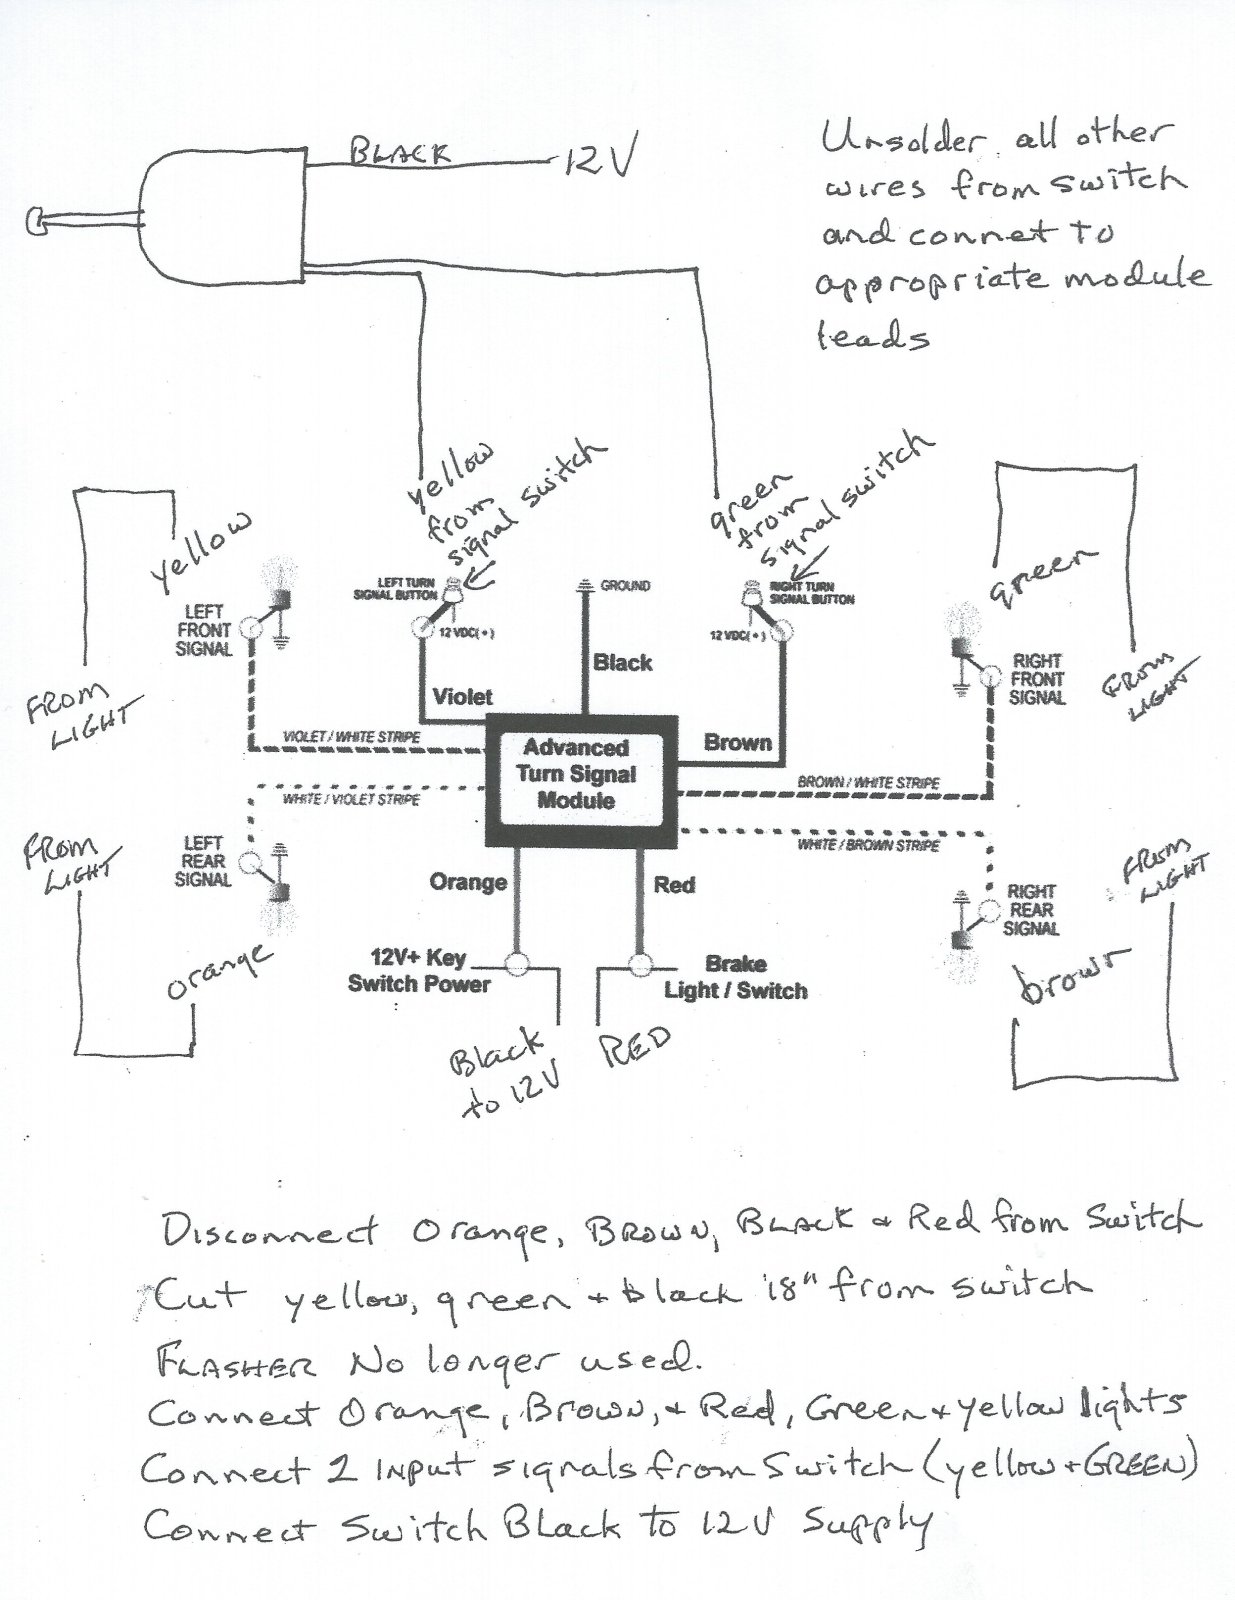 BLACK
12V
Unsolder all other
wires from switch
and connet to
appropriate module
leads
yellow
from
signal switch
green
from
signal switch
yellow
green
LEFT TURN
SIGNAL BUTTON
12 VDC(+)
GROUND
RIGHT TURN
SIGNAL BUTTON
12 VDC(+)
LEFT
FRONT
SIGNAL
Black
RIGHT
FRONT
SIGNAL
FROM
LIGHT
FROM
LIGHT
Violet
VIOLET / WHITE STRIPE
Advanced
Turn Signal
Module
Brown
BROWN / WHITE STRIPE
WHITE / VIOLET STRIPE
WHITE / BROWN STRIPE
FROM
LIGHT
LEFT
REAR
SIGNAL
Orange
Red
RIGHT
REAR
SIGNAL
FROM
LIGHT
orange
12V+ Key
Switch Power
Brake
Light / Switch
brown
Black
to 12V
RED
Disconnect Orange, BROWN, BLACK + Red from Switch
Cut yellow, green + black 18" from switch
FLASHER No longer used.
Connect Orange, Brown, + Red, Green + yellow lights
Connect 2 INPUT signals from Switch (yellow + GREEN)
Connect Switch BLack to 12V Supply